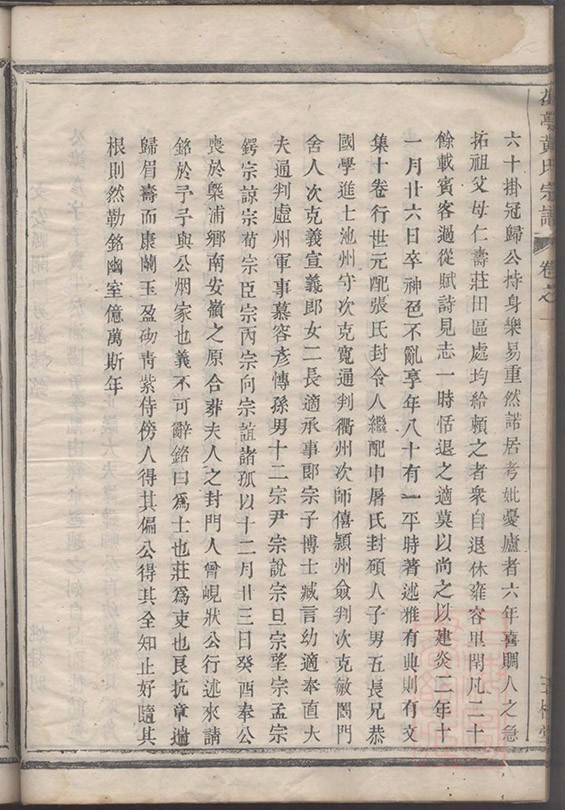 六十掛冠歸公持身樂易重然諾居考妣憂廬者六年喜賙人之急
拓祖父母仁壽莊田區處均給賴之者衆自退休雍容里閈凡二十
餘載賓客過從賦詩見志一時恬退之適莫以尚之以建炎二年十
一月廿六日卒神色不亂享年八十有一平時著述雅有典則有文
集十卷行世元配張氏封令人繼配申屠氏封碩人子男五長兄恭
國學進士池州守次克寬通判衢州次師僖潁州僉判次克敏閤門
舍人次克義宣義郎女二長適承事郎宗子博士臧言幼適奉直大
夫通判虛州軍事慕容彥慱孫男十二宗尹宗說宗旦宗堊宗孟宗
鍔宗諒宗荀宗臣宗丙宗向宗誼諸孤以十二月廿三日癸酉奉公
喪於槩浦鄉南安嶺之原合葬夫人之封門人曾峴狀公行述來請
銘於予予與公烟家也義不可辭銘曰爲士也莊爲吏也良抗章遄
歸眉壽而康蘭玉盈砌靑紫侍傍人得其偏公得其全知止好隨其
根則然勒銘幽室億萬斯年
黃氏宗譜
卷之一